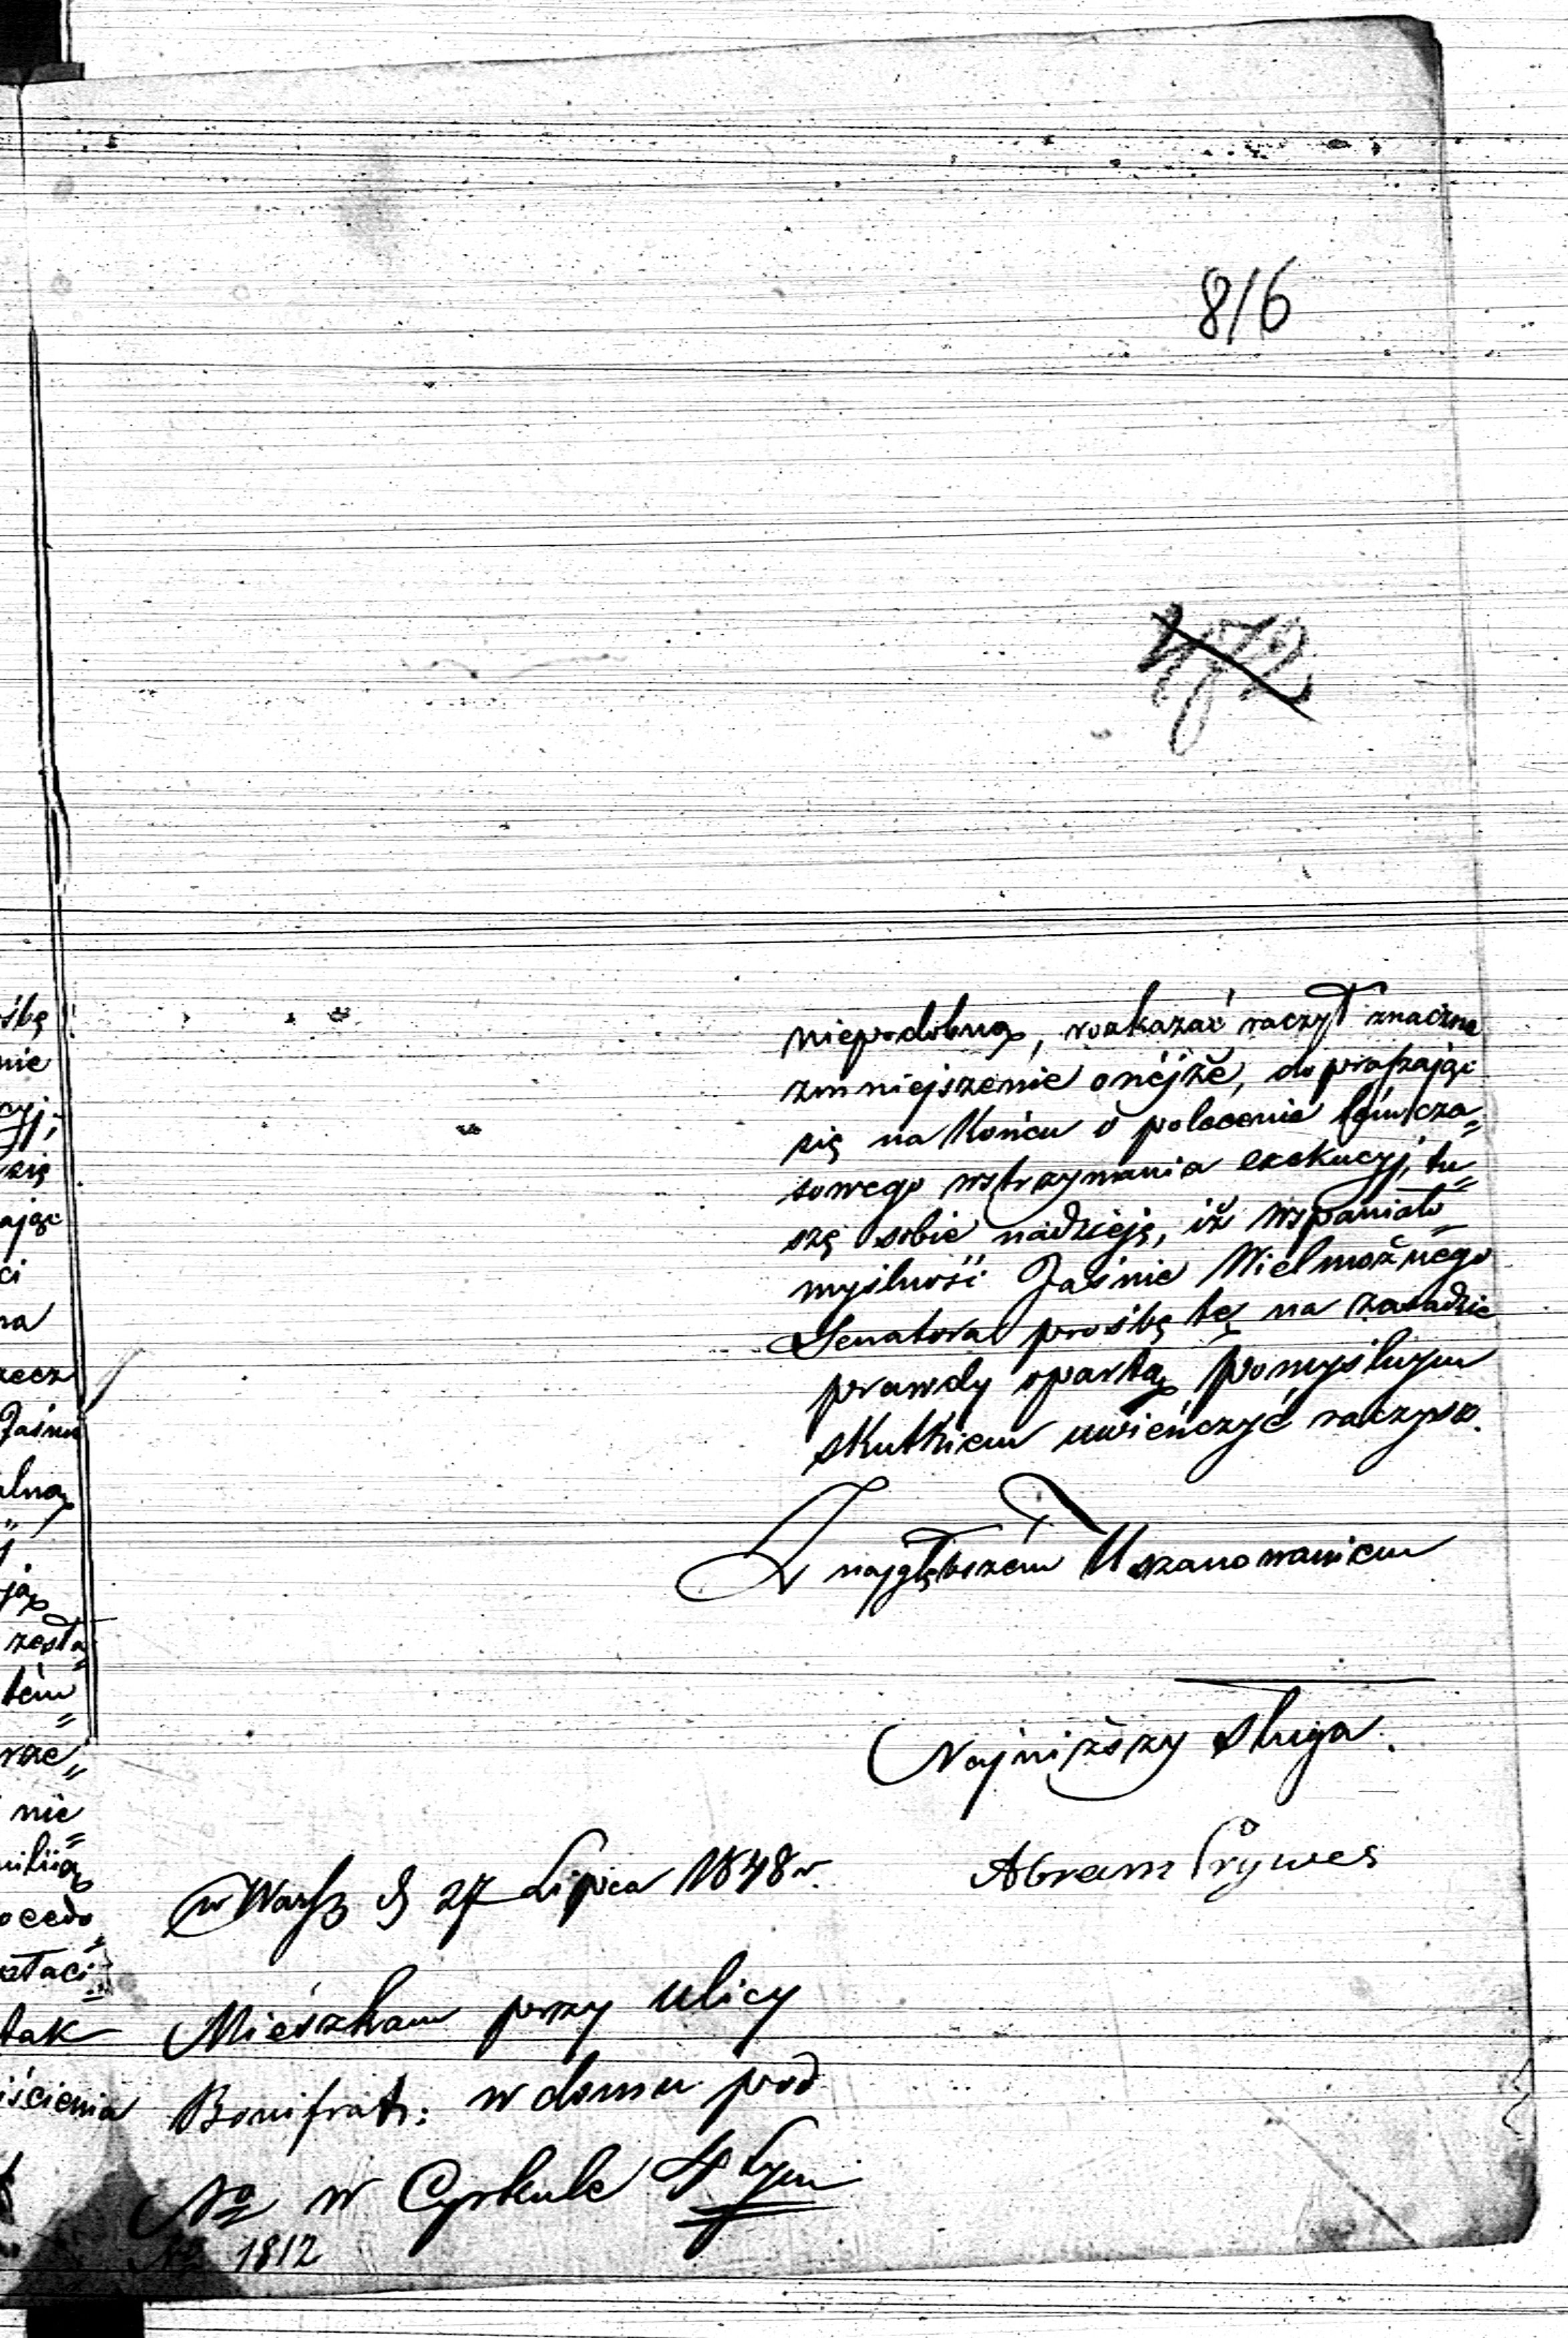 816
niepodobną, rozkazać raczył znaczne
zmniejszenie onéjże, dopraszając
się na końcu o polecenie tymcza„
sowego wstrzymania exekucyj, tu„
szę sobie nadzieję, iż wspaniało„
myślność Jaśnie Wielmożnego
Senatora prośbę tę na zasadzie
prawdy opartą pomyślnym
skutkiem uwieńczyć raczysz.
Z najgłębszém Uszanowaniem
Najniższy sługa.
Abram Prywes
w Warsz d 27 Lipca 1848 r.
Mieszkam przy ulicy
Bonifrat: w domu pod
No w Cyrkule 4tym
No 1812
ośbę
nie
cyj,
się
ając
ci
na
rzecz
Jaśnie
alną
ją
zosta„
tém„
nie„
ocedo„
tak
iścienia